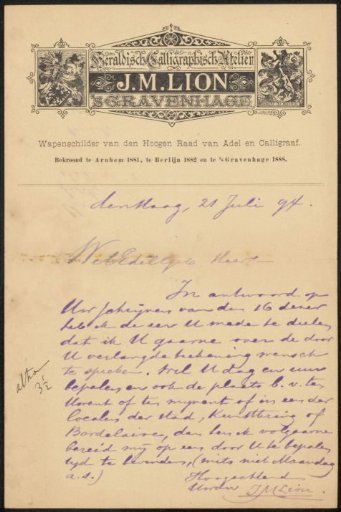 Heraldisch-Calligraphisch-Atelier
J.M. LION
'S GRAVENHAGE
Wapenschilder van den Hoogen Raad van Adel en Calligraaf.
Bekroond te Arnhem 1881, te Berlijn 1882 en te 's Gravenhage 1888.
den Haag, 21 Juli 94.
WelEdelgeb Heer
In antwoord op
Uw schrijven van den 16 dezer
heb ik de eer U mede te deelen
dat ik U gaarne over de door
U verlangde teekening wensch
te spreken. Wil U dag en uur
bepalen en ook de plaats b.v. ten
Uwent of ten mijnent of in een der
locales der Stad, Kunstkring of
dan ben ik volgaarne
bereid mij op een door U te bepalen
tijd te bevinden, (mits niet Maandag
a.s.)
Hoogachtend
J.M. Lion.
3½